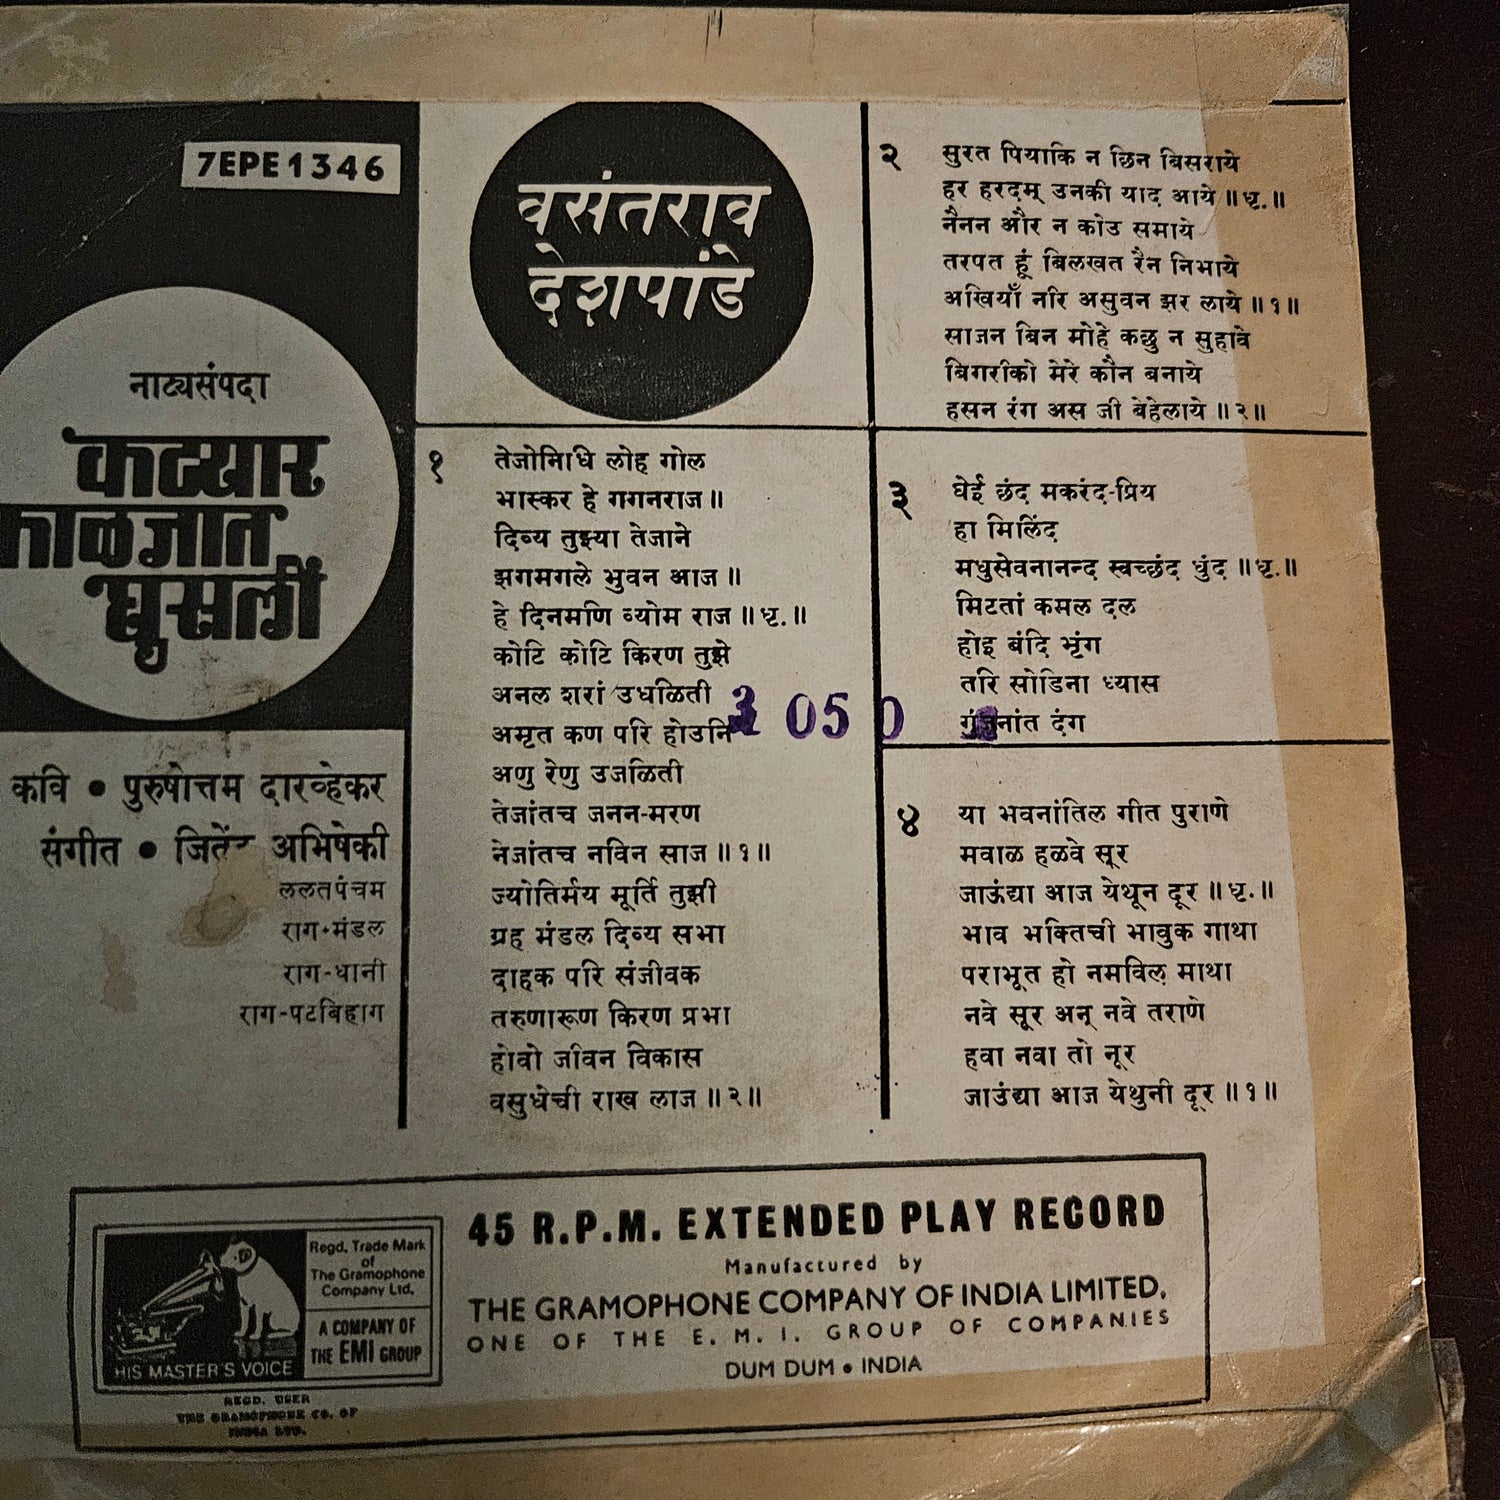 7EPE1346
नाट्यसंपदा
कट्यार
काळजात
घुसली
कवि • पुरुषोत्तम दारव्हेकर
संगीत • अभिषेकी
ललतपंचम
राग-मंडल
राग-धानी
राग-पटबिहाग
वसंतराव
देशपांडे
१
तेजोनिधि लोह गोल
भास्कर हे गगनराज॥
दिव्य तुझ्या तेजाने
झगमगले भुवन आज॥
हे दिनमणि व्योम राज॥धृ.॥
कोटि कोटि किरण तुझे
अनल शरां उधळिती
अमृत कण परि होउनि
अणु रेणु उजळिती
तेजांतच जनन-मरण
नेजांतच नविन साज॥१॥
ज्योतिर्मय मूर्ति तुझी
ग्रह मंडल दिव्य सभा
दाहक परि संजीवक
तरुणारूण किरण प्रभा
होवो जीवन विकास
वसुधेची राख लाज॥२॥
२
सुरत पियाकि न छिन बिसराये
हर हरदम् उनकी याद आये॥धृ.॥
नैनन और न कोउ समाये
तरपत हूं बिलखत रैन निभाये
अखियाँ नरि असुवन झर लाये॥१॥
साजन बिन मोहे कछु न सुहावे
बिगरीको मेरे कौन बनाये
हसन रंग अस जी बेहेलाये॥२॥
३
घेई छंद मकरंद-प्रिय
हा मिलिंद
मधुसेवनानन्द स्वच्छंद धुंद॥धृ.॥
मिटतां कमल दल
होइ बंदि भृंग
तरि सोडिना ध्यास
गुंजनांत दंग
3 05 0
४
या भवनांतिल गीत पुराणे
मवाळ हळवे सूर
जाऊंद्या आज येथून दूर॥धृ.॥
भाव भक्तिची भावुक गाथा
पराभूत हो नमविल माथा
नवे सूर अन् नवे तराणे
हवा नवा तो नूर
जाउंद्या आज येथुनी दूर॥१॥
Regd. Trade Mark
of
The Gramophone
Company Ltd.
A COMPANY OF
THE EMI GROUP
HIS MASTER'S VOICE
REGD. USER
THE GRAMOPHONE CO. OF
INDIA LTD.
45 R.P.M. EXTENDED PLAY RECORD
Manufactured by
THE GRAMOPHONE COMPANY OF INDIA LIMITED.
ONE OF THE E. M. I. GROUP OF COMPANIES
DUM DUM • INDIA